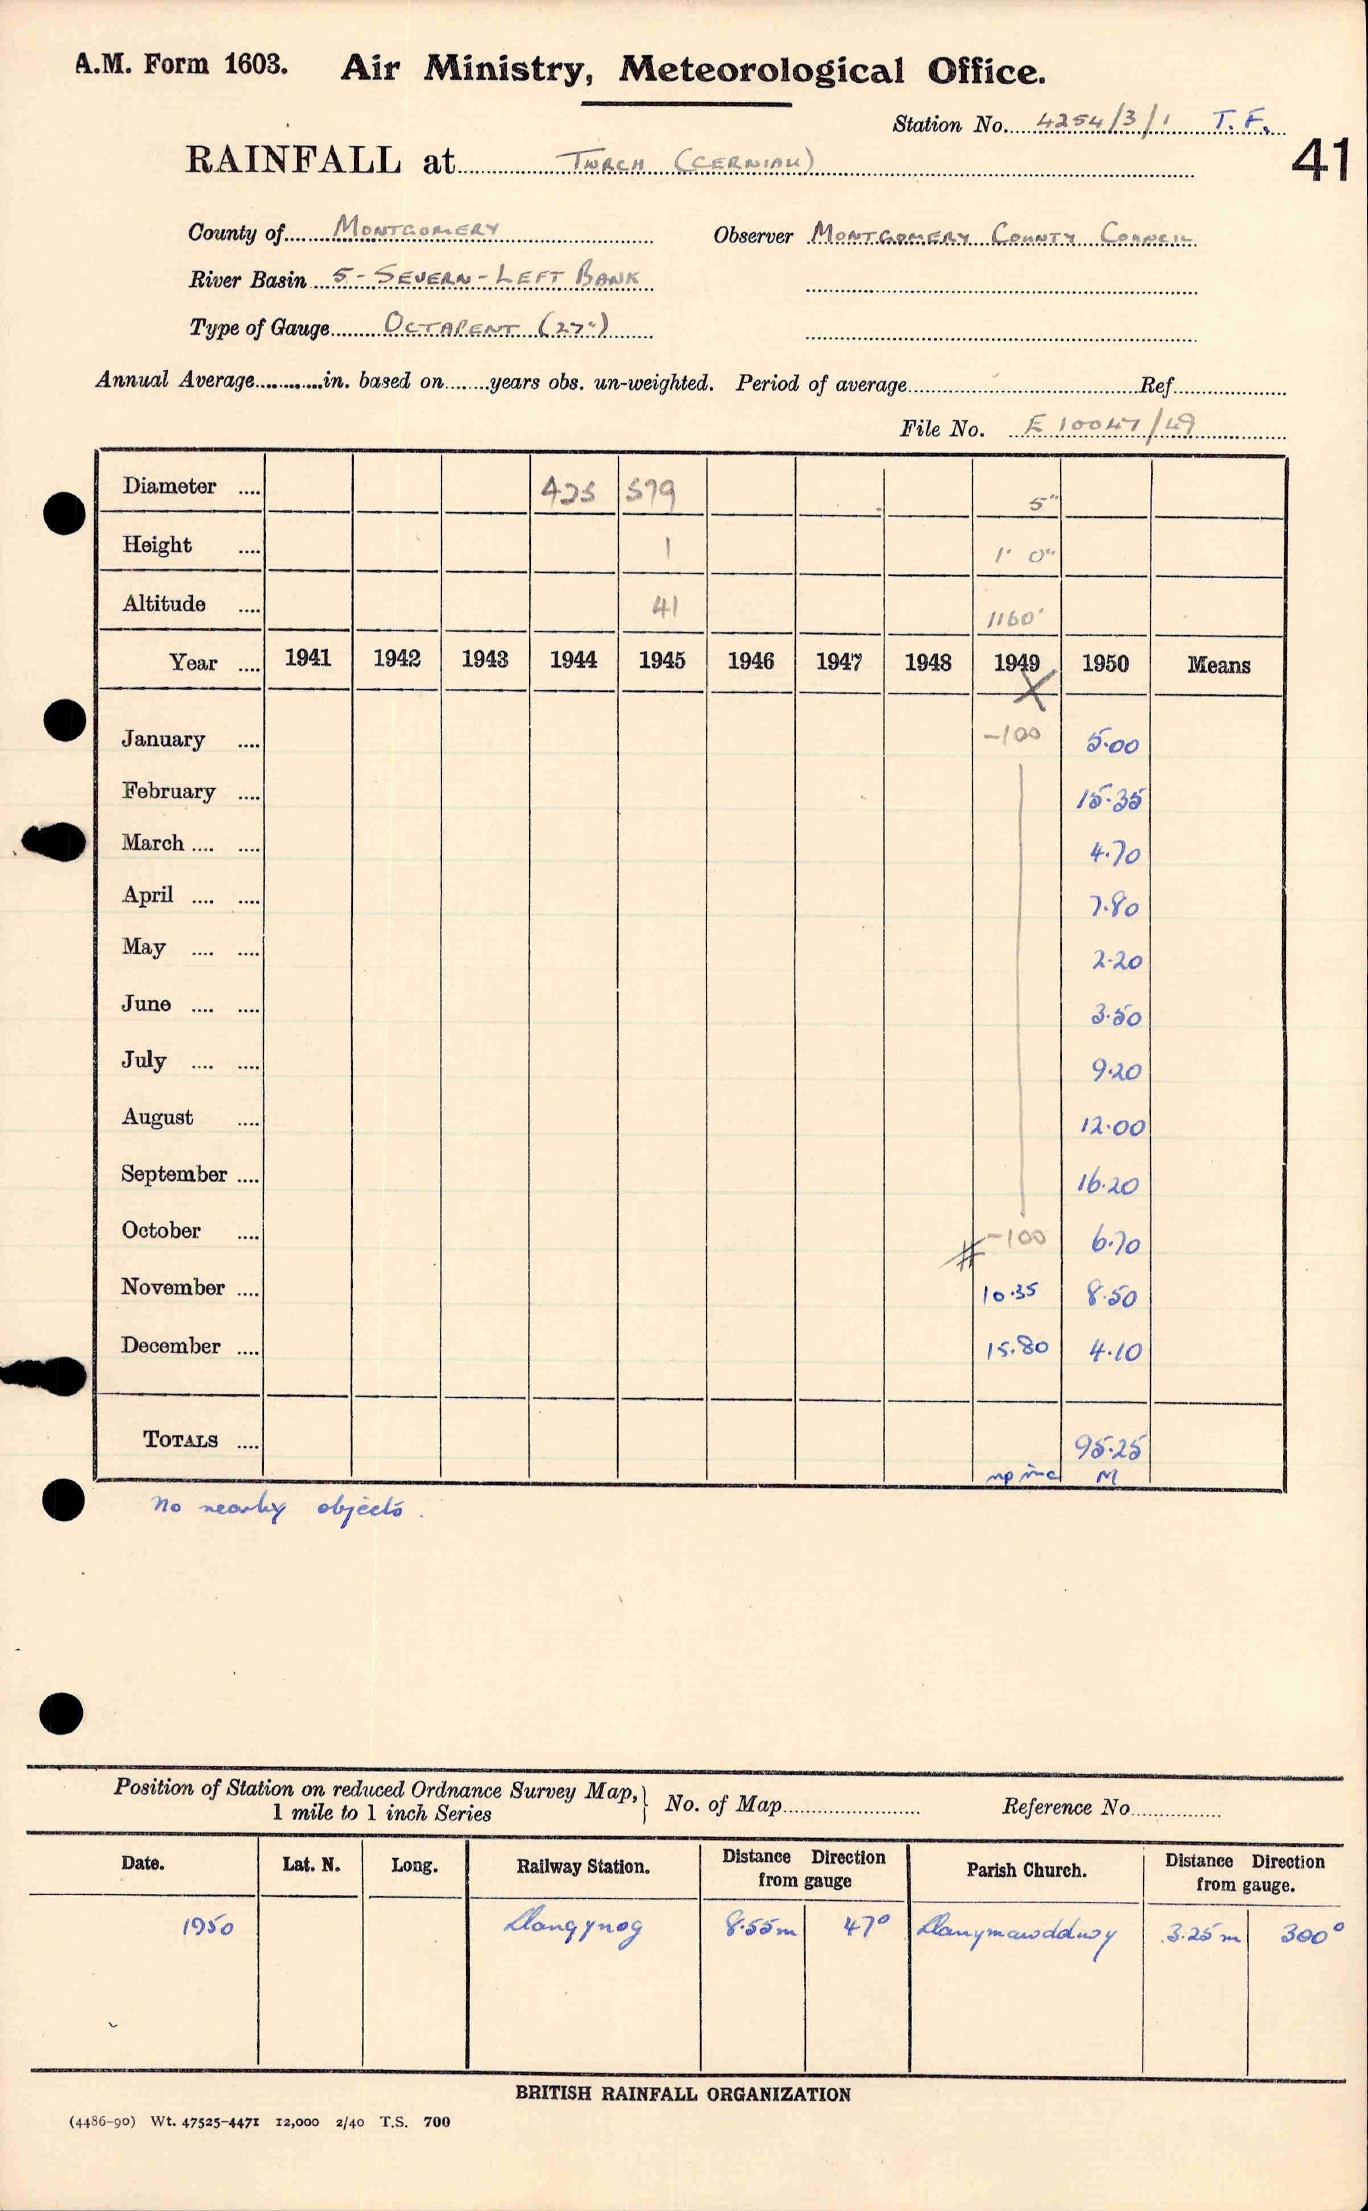 A.M. Form 1603. Air Ministry, Meteorological Office.
Station No. 4254/3/1 T.F.
41
RAINFALL at TWRCH (CERNIAU)
County of MONTGOMERY Observer MONTGOMERY COUNTY COUNCIL
River Basin 5 - SEVERN - LEFT BANK
Type of Gauge OCTAPENT (27")
Annual Average in. based on years obs. un-weighted. Period of average Ref
File No. E 10047/49
Diameter 425 579 5"
Height 1 1' 0"
Altitude 41 1160'
Year 1941 1942 1943 1944 1945 1946 1947 1948 1949 1950 Means
January -100 5.00
February 15.35
March 4.70
April 7.80
May 2.20
June 3.50
July 9.20
August 12.00
September 16.20
October -100 6.70
November 10.35 8.50
December 15.80 4.10
TOTALS 95.25
np inc M
No nearby objects.
Position of Station on reduced Ordnance Survey Map, 1 mile to 1 inch Series No. of Map Reference No.
Date. Lat. N. Long. Railway Station. Distance Direction from gauge Parish Church. Distance Direction from gauge.
1950 Llangynog 8.55m 47° Llanymawddwy 3.25m 300°
BRITISH RAINFALL ORGANIZATION
(4486-90) Wt. 47525-4471 12,000 2/40 T.S. 700